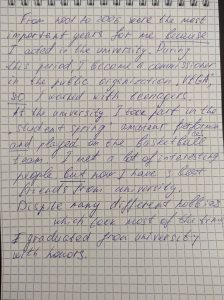 From 2001 to 2006 were the most
important years for me because
I acted in the university. During
this period I became a commissioner
in the public organization
so I worked with teenagers.
At the university I took part in the
student spring amateur
and played on the basketball
team. I met a lot of interesting
people but now I have 3 best
friends from university.
Dispite many different hobbies
which took most of the time
I graduated from university
with honors.